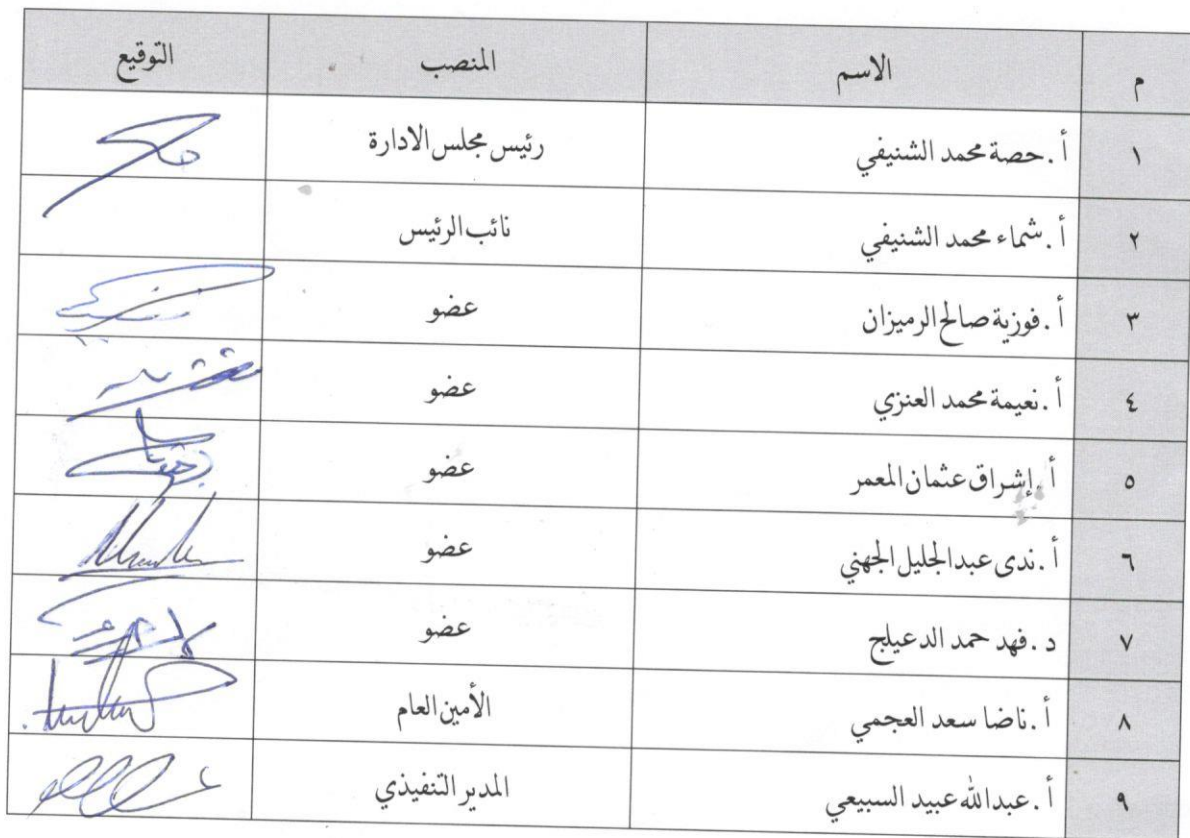 م الاسم المنصب التوقيع
١ أ.حصة محمد الشنيفي رئيس مجلس الادارة
٢ أ.شماء محمد الشنيفي نائب الرئيس
٣ أ.فوزية صالح الرميزان عضو
٤ أ.نعيمة محمد العنزي عضو
٥ أ.إشراق عثمان المعمر عضو
٦ أ.ندى عبدالجليل الجهني عضو
٧ د.فهد حمد الدعيلج عضو
٨ أ.ناضا سعد العجمي الأمين العام
٩ أ.عبدالله عبيد السبيعي المدير التنفيذي